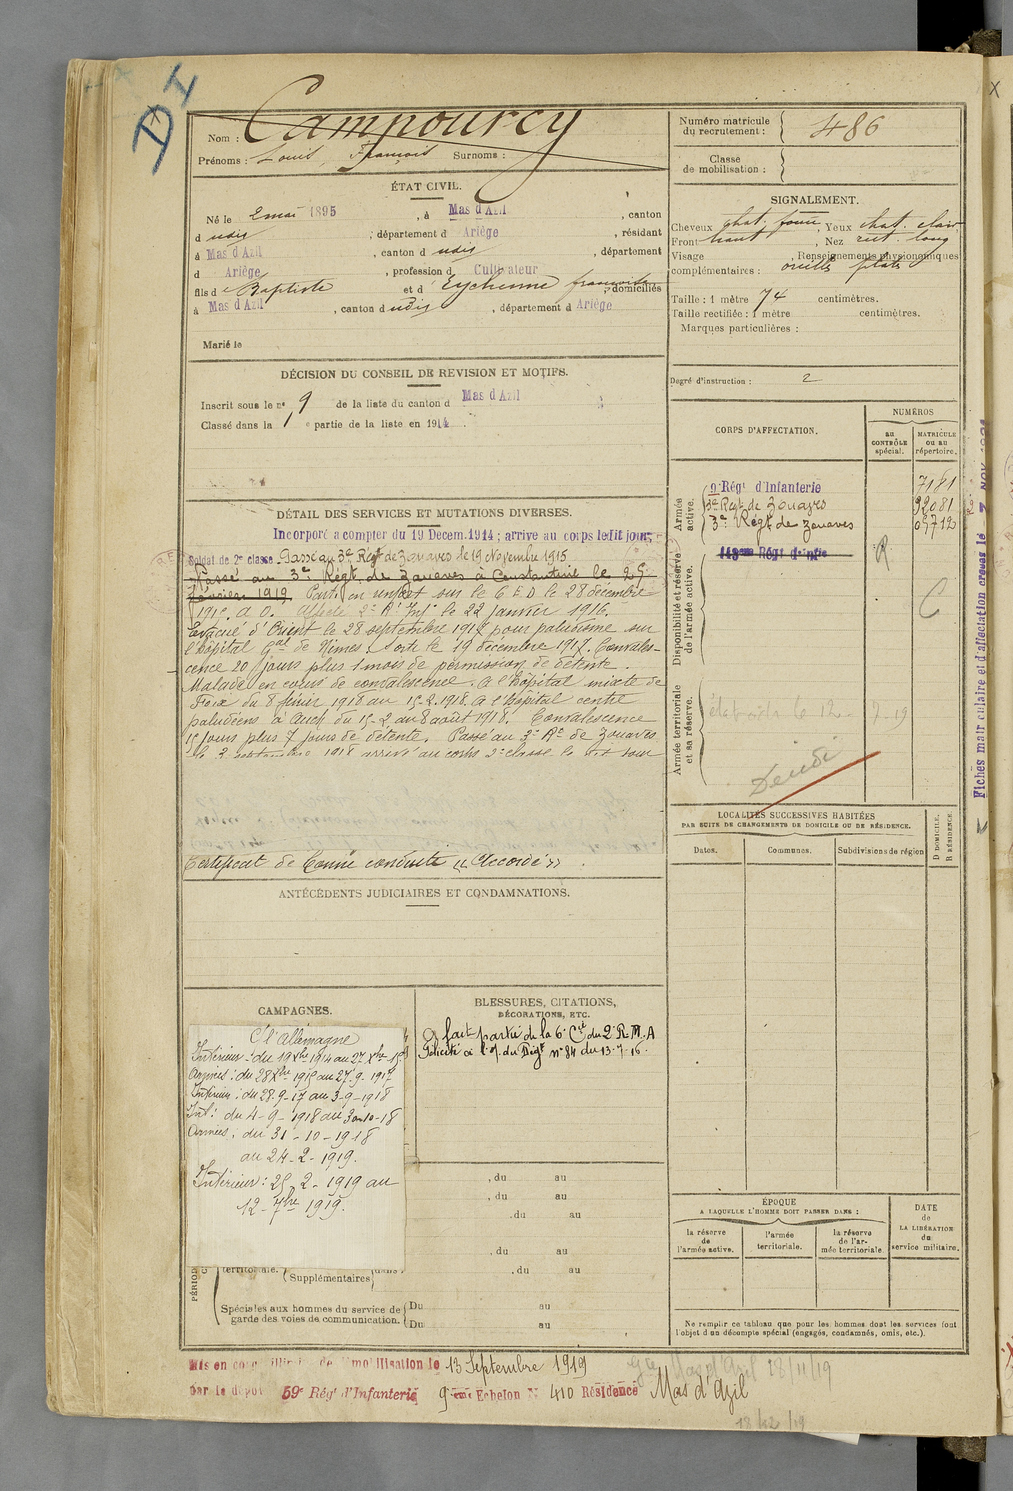 DI
Nom : Campourcy
Prénoms : Louis, François Surnoms :
Numéro matricule du recrutement : 486
Classe de mobilisation :
ÉTAT CIVIL.
Né le 2 mai 1895, à Mas d'Azil, canton
d udis, département d Ariège, résidant
à Mas d'Azil, canton d udis, département
d Ariège, profession d Cultivateur
fils de Baptiste et d' Eychenne françoise, domiciliés
à Mas d'Azil, canton d udis, département d Ariège
Marié le
SIGNALEMENT.
Cheveux chat. foncé, Yeux chat. clair,
Front haut, Nez rect. long
Visage , Renseignements physionomiques
complémentaires : oreilles plates
Taille : 1 mètre 74 centimètres.
Taille rectifiée : 1 mètre centimètres.
Marques particulières :
Degré d'instruction : 2
DÉCISION DU CONSEIL DE REVISION ET MOTIFS.
Inscrit sous le n° 9 de la liste du canton d Mas d'Azil
Classé dans la 1e partie de la liste en 1914.
DÉTAIL DES SERVICES ET MUTATIONS DIVERSES.
Incorporé à compter du 19 Decem. 1914 ; arrivé au corps ledit jour,
Soldat de 2e classe. Passé au 3e Régt de Zouaves le 19 Novembre 1915
Passé au 3e Régt de Zouaves à Constantine le 25
février 1919. Parti en renfort sur le C.E.D. le 28 décembre
1915. A.O. Affecté 2e Rt Inf. le 22 Janvier 1916.
Evacué d'Orient le 28 septembre 1917 pour paludisme sur
l'hôpital Gal de Nîmes. Sorti le 19 décembre 1917. Convales-
cence 20 jours plus 1 mois de permission de détente.
Malade en cours de convalescence. A l'hôpital mixte de
Foix du 8 février 1918 au 15-2-1918. A l'hôpital centre
paludéens à Auch du 15-2 au 8 août 1918. Convalescence
15 jours plus 7 jours de détente. Passé au 3e Rt de Zouaves
le 3 septembre 1918 arrivé au corps 2e classe le dit jour
Certificat de bonne conduite "Accordé".
CORPS D'AFFECTATION.
NUMÉROS
au CONTRÔLE spécial.
MATRICULE ou au répertoire.
Armée active.
9e Régt d'Infanterie 7181
3e Régt de Zouaves 32081
3e Régt de Zouaves 05712
Disponibilité et réserve de l'armée active.
143eme Régt d'infie
R
C
Armée territoriale et sa réserve.
le 12 7-19
Décédé
LOCALITÉS SUCCESSIVES HABITÉES
PAR SUITE DE CHANGEMENTS DE DOMICILE OU DE RÉSIDENCE.
Dates. Communes. Subdivisions de région
D DOMICILE. R RÉSIDENCE.
ANTÉCÉDENTS JUDICIAIRES ET CONDAMNATIONS.
CAMPAGNES.
C/ l'Allemagne
Intérieur : du 19 Xbre 1914 au 27 Xbre 15
Armées : du 28 Xbre 1915 au 27-9-1917
Intérieur : du 28-9-17 au 3-9-1918
Int : du 4-9-1918 au 30-10-18
Armées : du 31-10-1918
au 24-2-1919.
Intérieur : 25-2-1919 au
12-7bre 1919.
BLESSURES, CITATIONS,
DÉCORATIONS, ETC.
A fait partie de la 6e Cie du 2e R.M.A
Félicité à l'O. du Régt n° 84 du 13-7-16.
, du au
, du au
, du au
, du au
, du au
territoriale.
Supplémentaires dans
Spéciales aux hommes du service de garde des voies de communication.
Du au
Du au
ÉPOQUE
A LAQUELLE L'HOMME DOIT PASSER DANS :
la réserve de l'armée active.
l'armée territoriale.
la réserve de l'armée territoriale
DATE de LA LIBÉRATION du service militaire.
Ne remplir ce tableau que pour les hommes dont les services font
l'objet d'un décompte spécial (engagés, condamnés, omis, etc.).
Mis en congé illimité de démobilisation le 13 Septembre 1919
par le dépôt 59e Régt d'Infanterie 9eme Echelon N° 410 Résidence Mas d'Azil
Mas d'Azil 28/11/19
18/12/19
Fiches matriculaire et d'affectation créées le 7 NOV